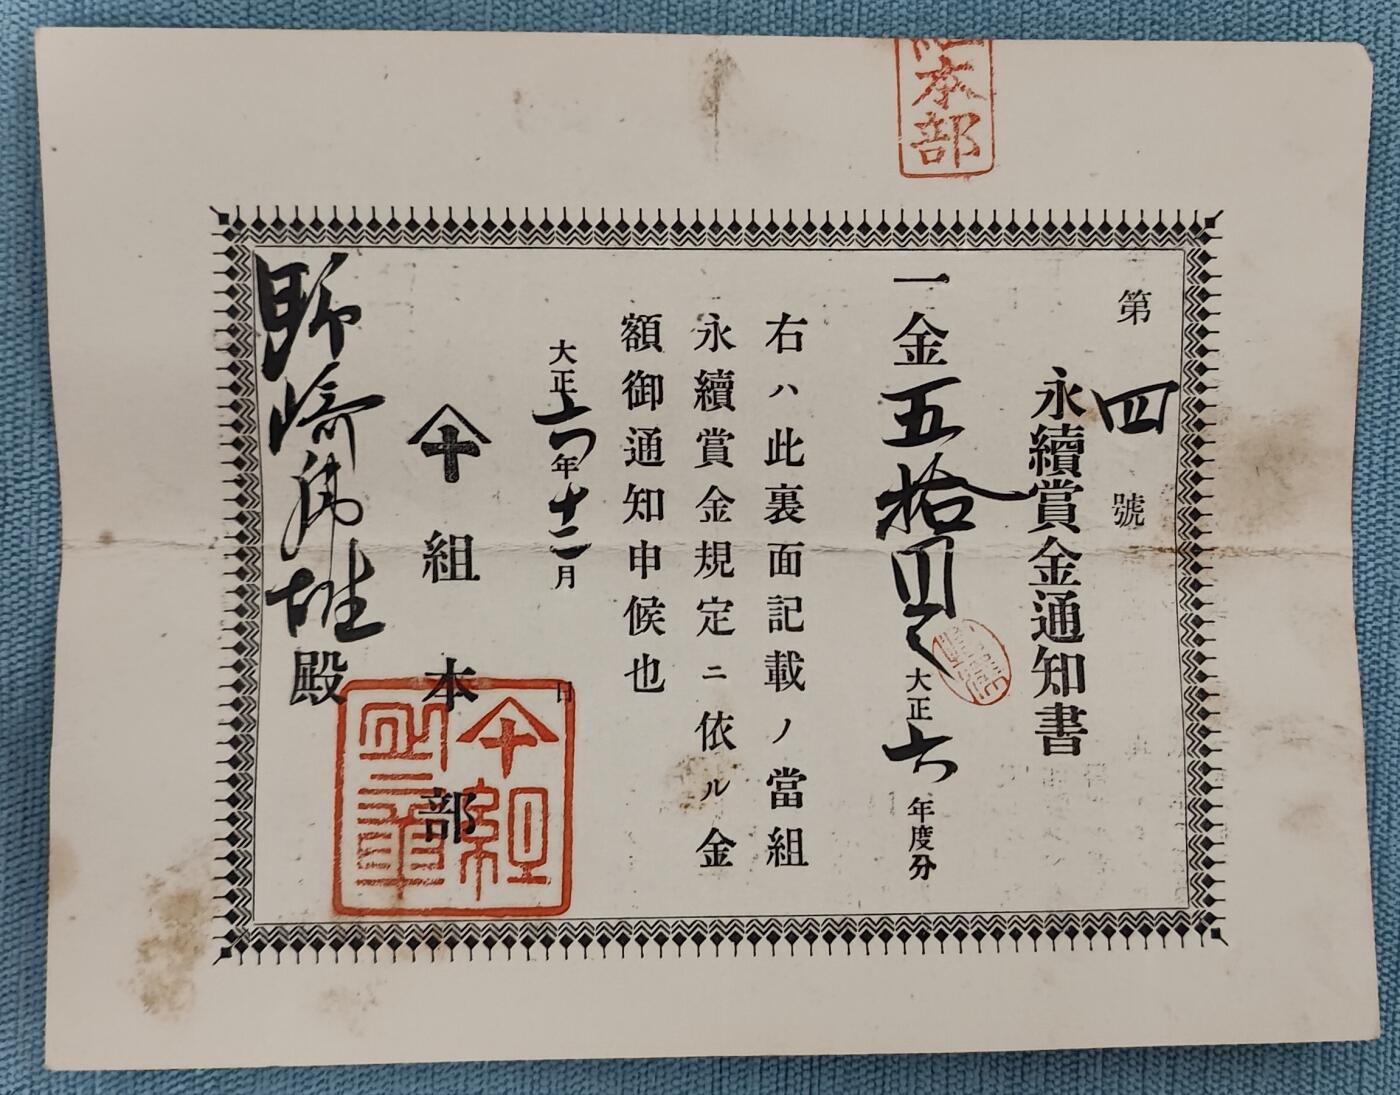 第四號
永續賞金通知書
一金五拾円也
大正六年度分
右ハ此裏面記載ノ當組
永續賞金規定ニ依ル金
額御通知申候也
大正六年十二月 日
组本部
野崎 殿
本部